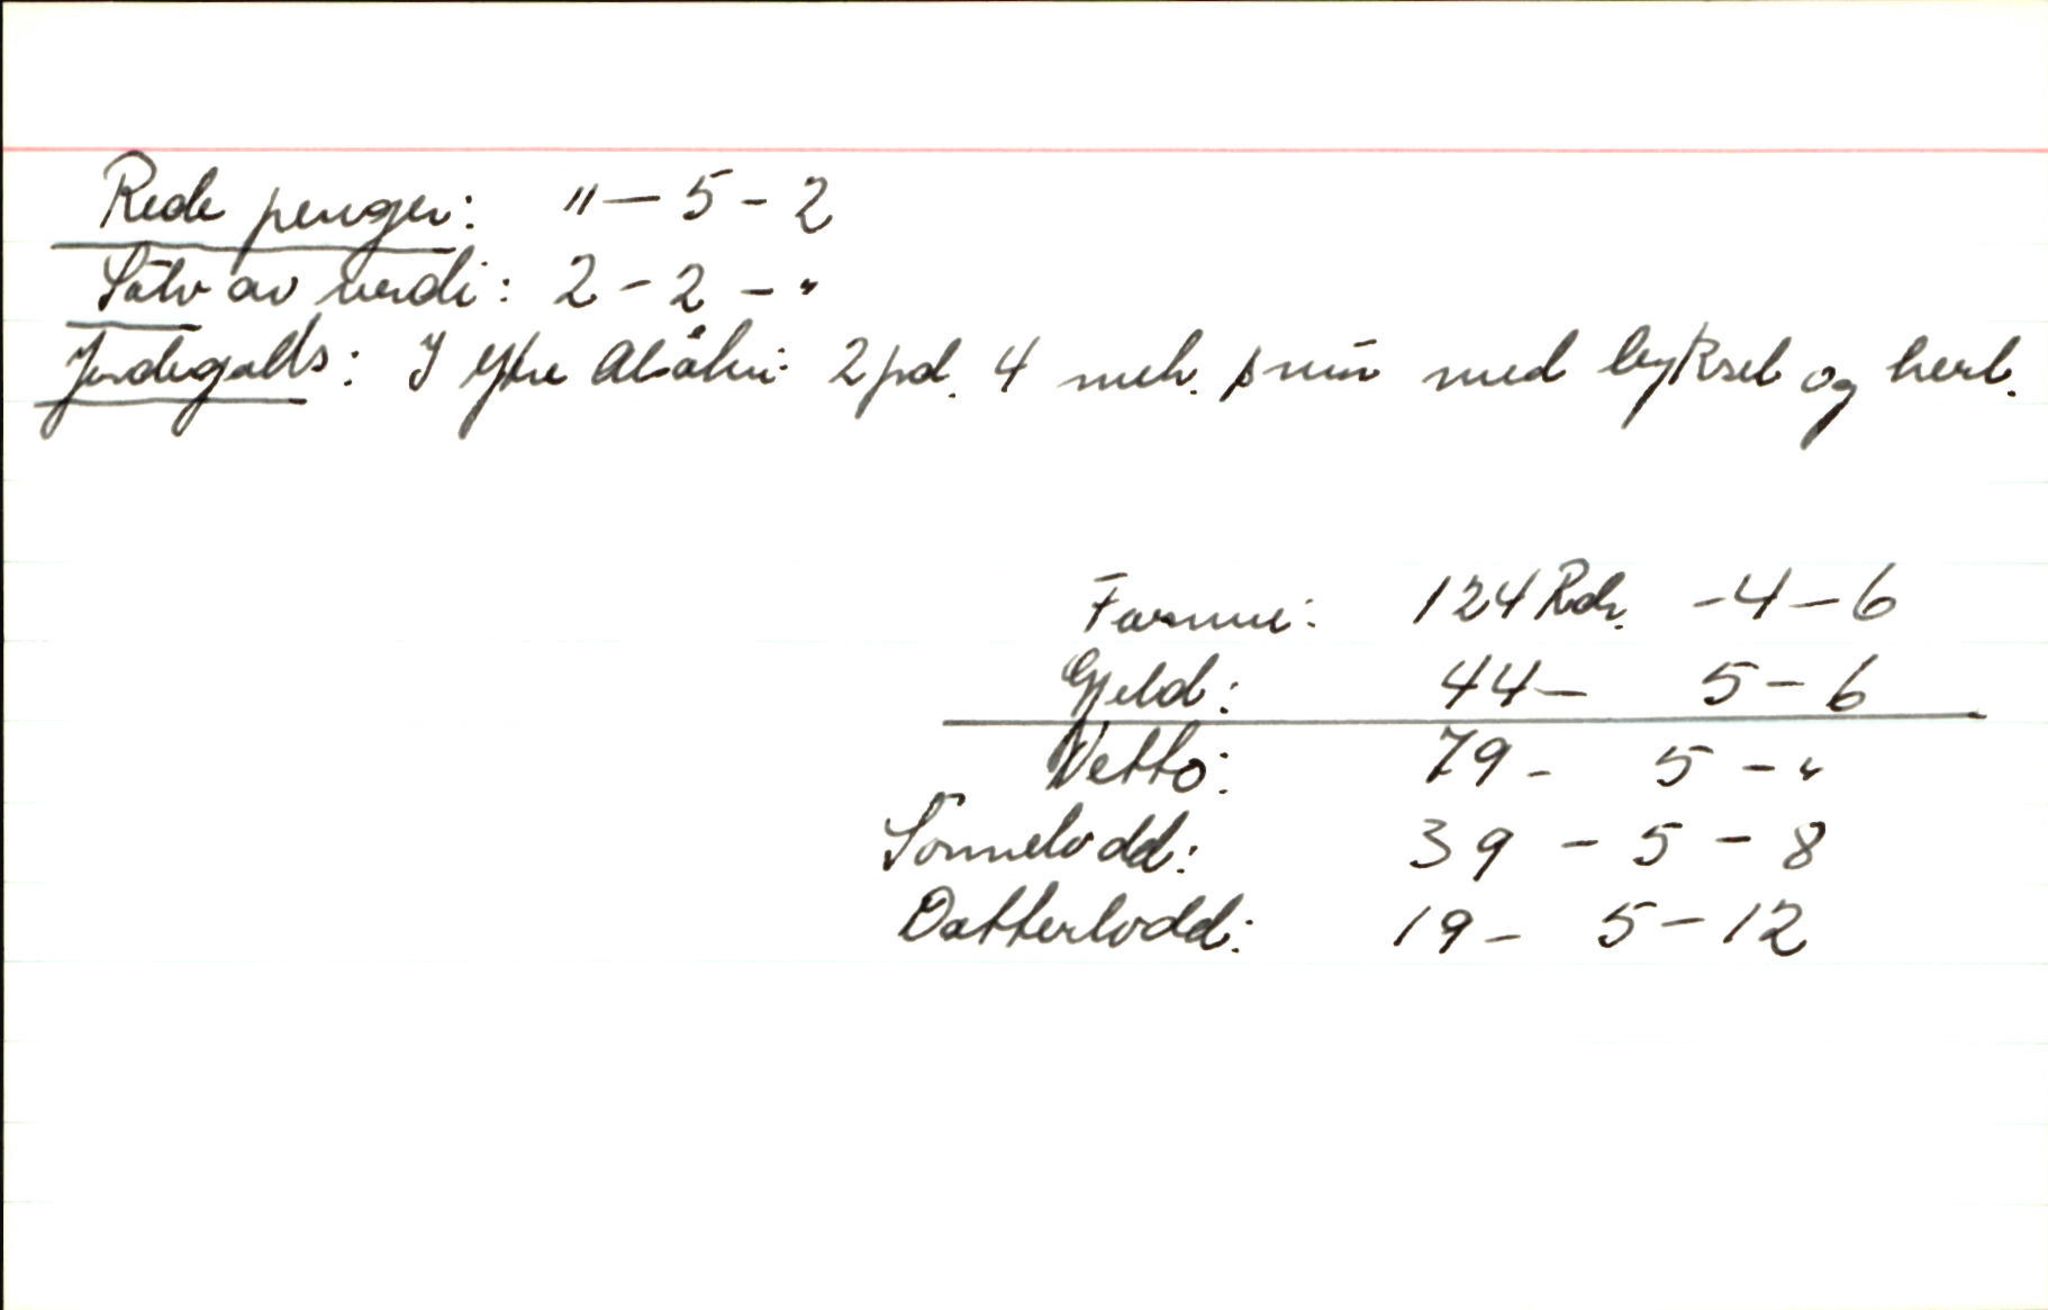 Rede penger: " — 5 - 2
Sølv av verdi: 2 - 2 - "
Jordegods: I Ytre Alsåker 2 pd. 4 mek. smør med byksel og herl.
Formue: 124 Rdr. - 4 - 6
Gjeld: 44 - 5 - 6
Netto: 79 - 5 - "
Sønnelodd: 39 - 5 - 8
Datterlodd: 19 - 5 - 12